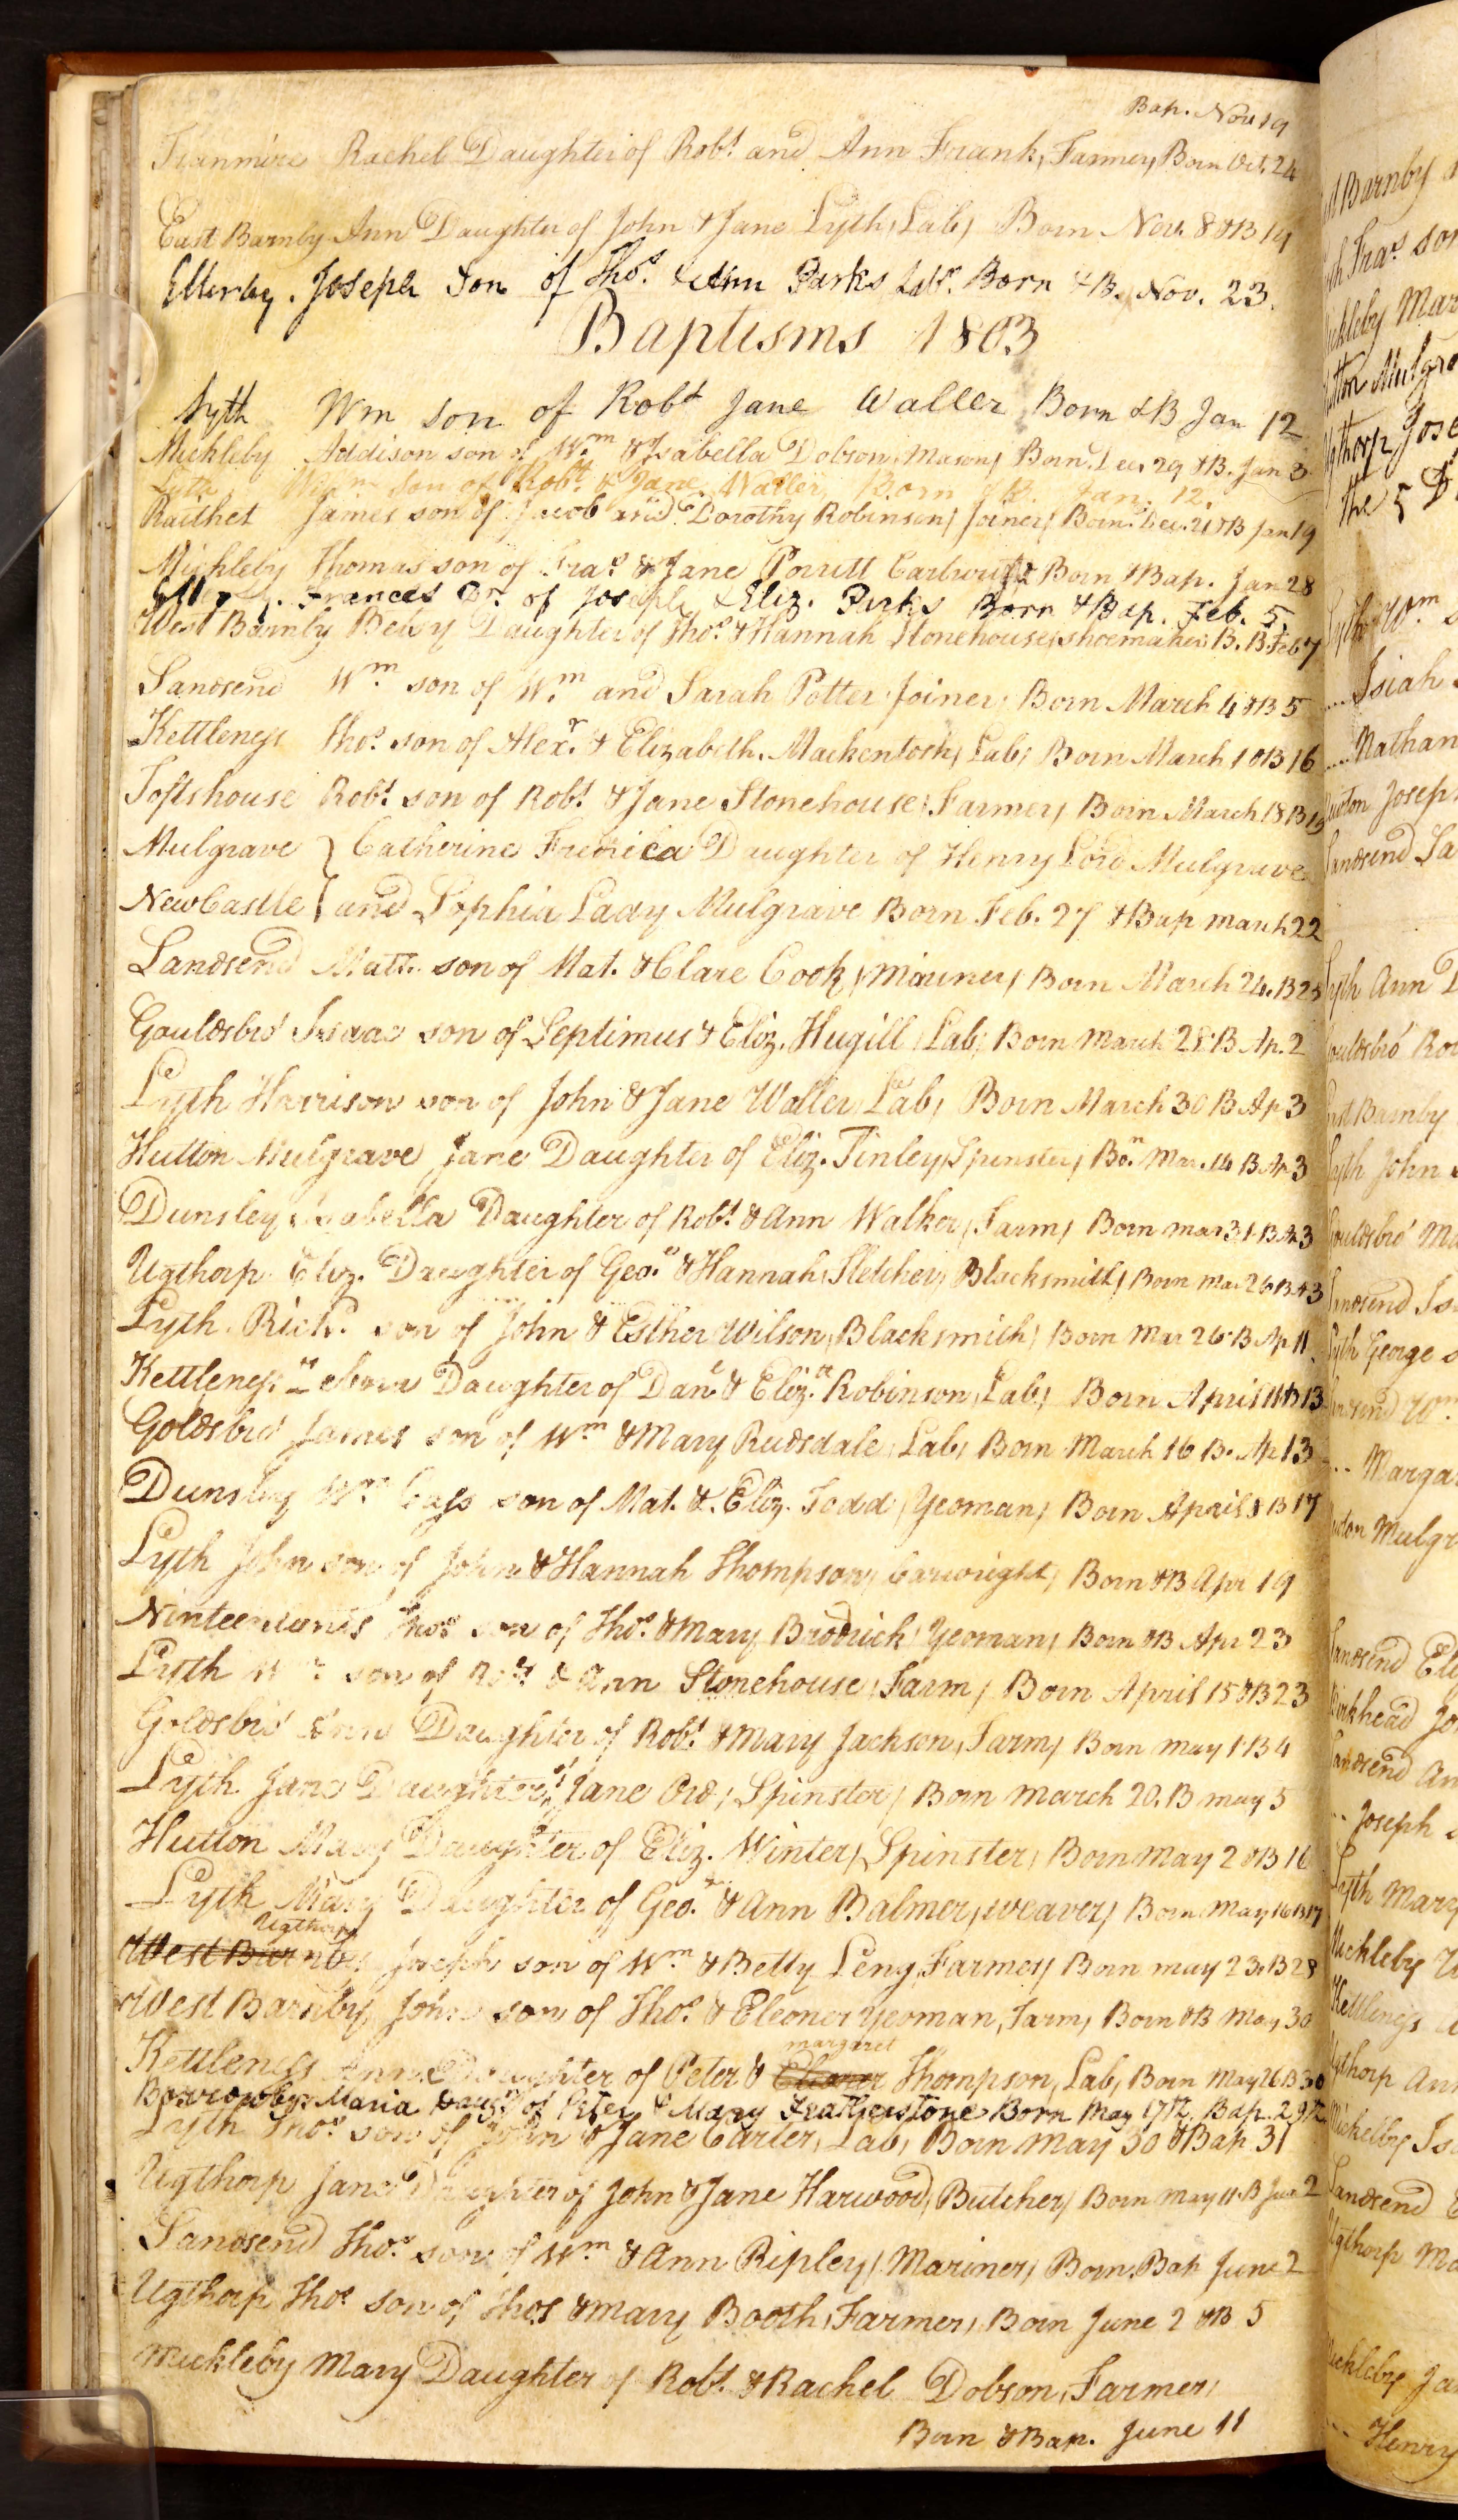 Bap. Nov 19
Tranmire Rachel Daughter of Robt and Ann Frank, Farmer, Born Oct. 24
East Barnby Ann Daughter of John & Jane Lyth, Lab, Born Nov. 8 & B 19
Ellerby. Joseph Son of Thos. & Ann Parks Labr. Born & B. Nov. 23.
Baptisms 1803
Lyth Wm son of Robt Jane Waller Born & B Jan 12
Mickleby Addison son of Wm & Isabella Dobson, Mason, Born Dec. 29 & B. Jan 3
Lyth Wm son of Robt & Jane Waller, Born & B. Jan. 12.
Raithet James son of Jacob and Dorothy Robinson, Joiner, Born Dec. 21 & B Jan 19
Mickleby Thomas son of Fras & Jane Porritt Cartwright Born & Bap. Jan 28
Frances Dr. of Joseph & Eliz. Parks Born & Bap. Feb. 5.
West Barnby Betsy Daughter of Thos & Hannah Stonehouse, shoemaker B. B. Feb 7
Sandsend Wm son of Wm and Sarah Potter Joiner, Born March 4 & B 5
Kettleness Thos. son of Alexr. & Elizabeth Mackentosh, Lab, Born March 1 & B 16
Toftshouse Robt son of Robt & Jane Stonehouse, Farmer, Born March 18 B 19
Mulgrave } Catherine Frederica Daughter of Henry Lord Mulgrave
NewCastle } and Sophia Lady Mulgrave Born Feb. 27 & Bap March 22
Sandsend Matt. son of Mat. & Clare Cook, Mariner, Born March 24. B 25
Gouldsbro' Isaac son of Septimus & Eliz. Hugill, Lab, Born March 28 B Ap. 2
Lyth Harrison son of John & Jane Waller, Lab, Born March 30 B Ap 3
Hutton Mulgrave Jane Daughter of Eliz. Tinley, Spinster, Bon. Mar. 14 B Ap 3
Dunsley Isabella Daughter of Robt & Ann Walker, Farm, Born Mar 31 B Ap 3
Ugthorp Eliz. Daughter of Geo. & Hannah Fletcher, Blacksmith, Born Mar 26 B A 3
Lyth Richd. son of John & Esther Wilson, Blacksmith, Born Mar 26 B Ap 11
Kettleness Daughter of Danl & Eliz. Robinson, Lab, Born April 11 & B 13
Goldsbro' James son of Wm & Mary Rudsdale, Lab, Born March 16 B. Ap 13
Dunsley Wm son of Mat. & Eliz. Todd, Yeoman, Born April 8 B 17
Lyth John son of John & Hannah Thompson, Carwright, Born & B Apr 19
Ninteenlands Thos son of Thos. & Mary Brodrick Yeoman, Born & B Apr 23
Lyth Wm son of Robt & Ann Stonehouse, Farm, Born April 15 & B 23
Goldsbro' Ann Daughter of Robt & Mary Jackson, Farm, Born May 1 B 4
Lyth Jane Daughter of Jane Ord, Spinster, Born March 20. B May 5
Hutton Mary Daughter of Eliz. Winter, Spinster, Born May 2 & B 16
Lyth Mary Daughter of Geo. & Ann Balmer, weaver, Born May 16 B 17
Ugthorp
West Barnby Joseph son of Wm & Betty Leng, Farmer, Born May 23. B 28
West Barnby John son of Thos. & Eleoner Yeoman, Farm, Born & B May 30
margaret
Kettleness Ann Daughter of Peter & Eleoner Thompson, Lab, Born May 26 B 30
Borrowby Maria Daugr of Peter & Mary Featherstone Born May 17th. Bap. 29th
Lyth Thos. son of John & Jane Carter, Lab, Born May 30 & Bap 31
Ugthorp Jane Daughter of John & Jane Harwood, Butcher, Born May 11 B Jun 2
Sandsend Thos. son of Wm & Ann Ripley, Mariner, Born. Bap June 2
Ugthorp Thos son of Thos & Mary Booth, Farmer, Born June 2 & B 5
Mickleby Mary Daughter of Robt & Rachel Dobson, Farmer,
Born & Bap. June 11